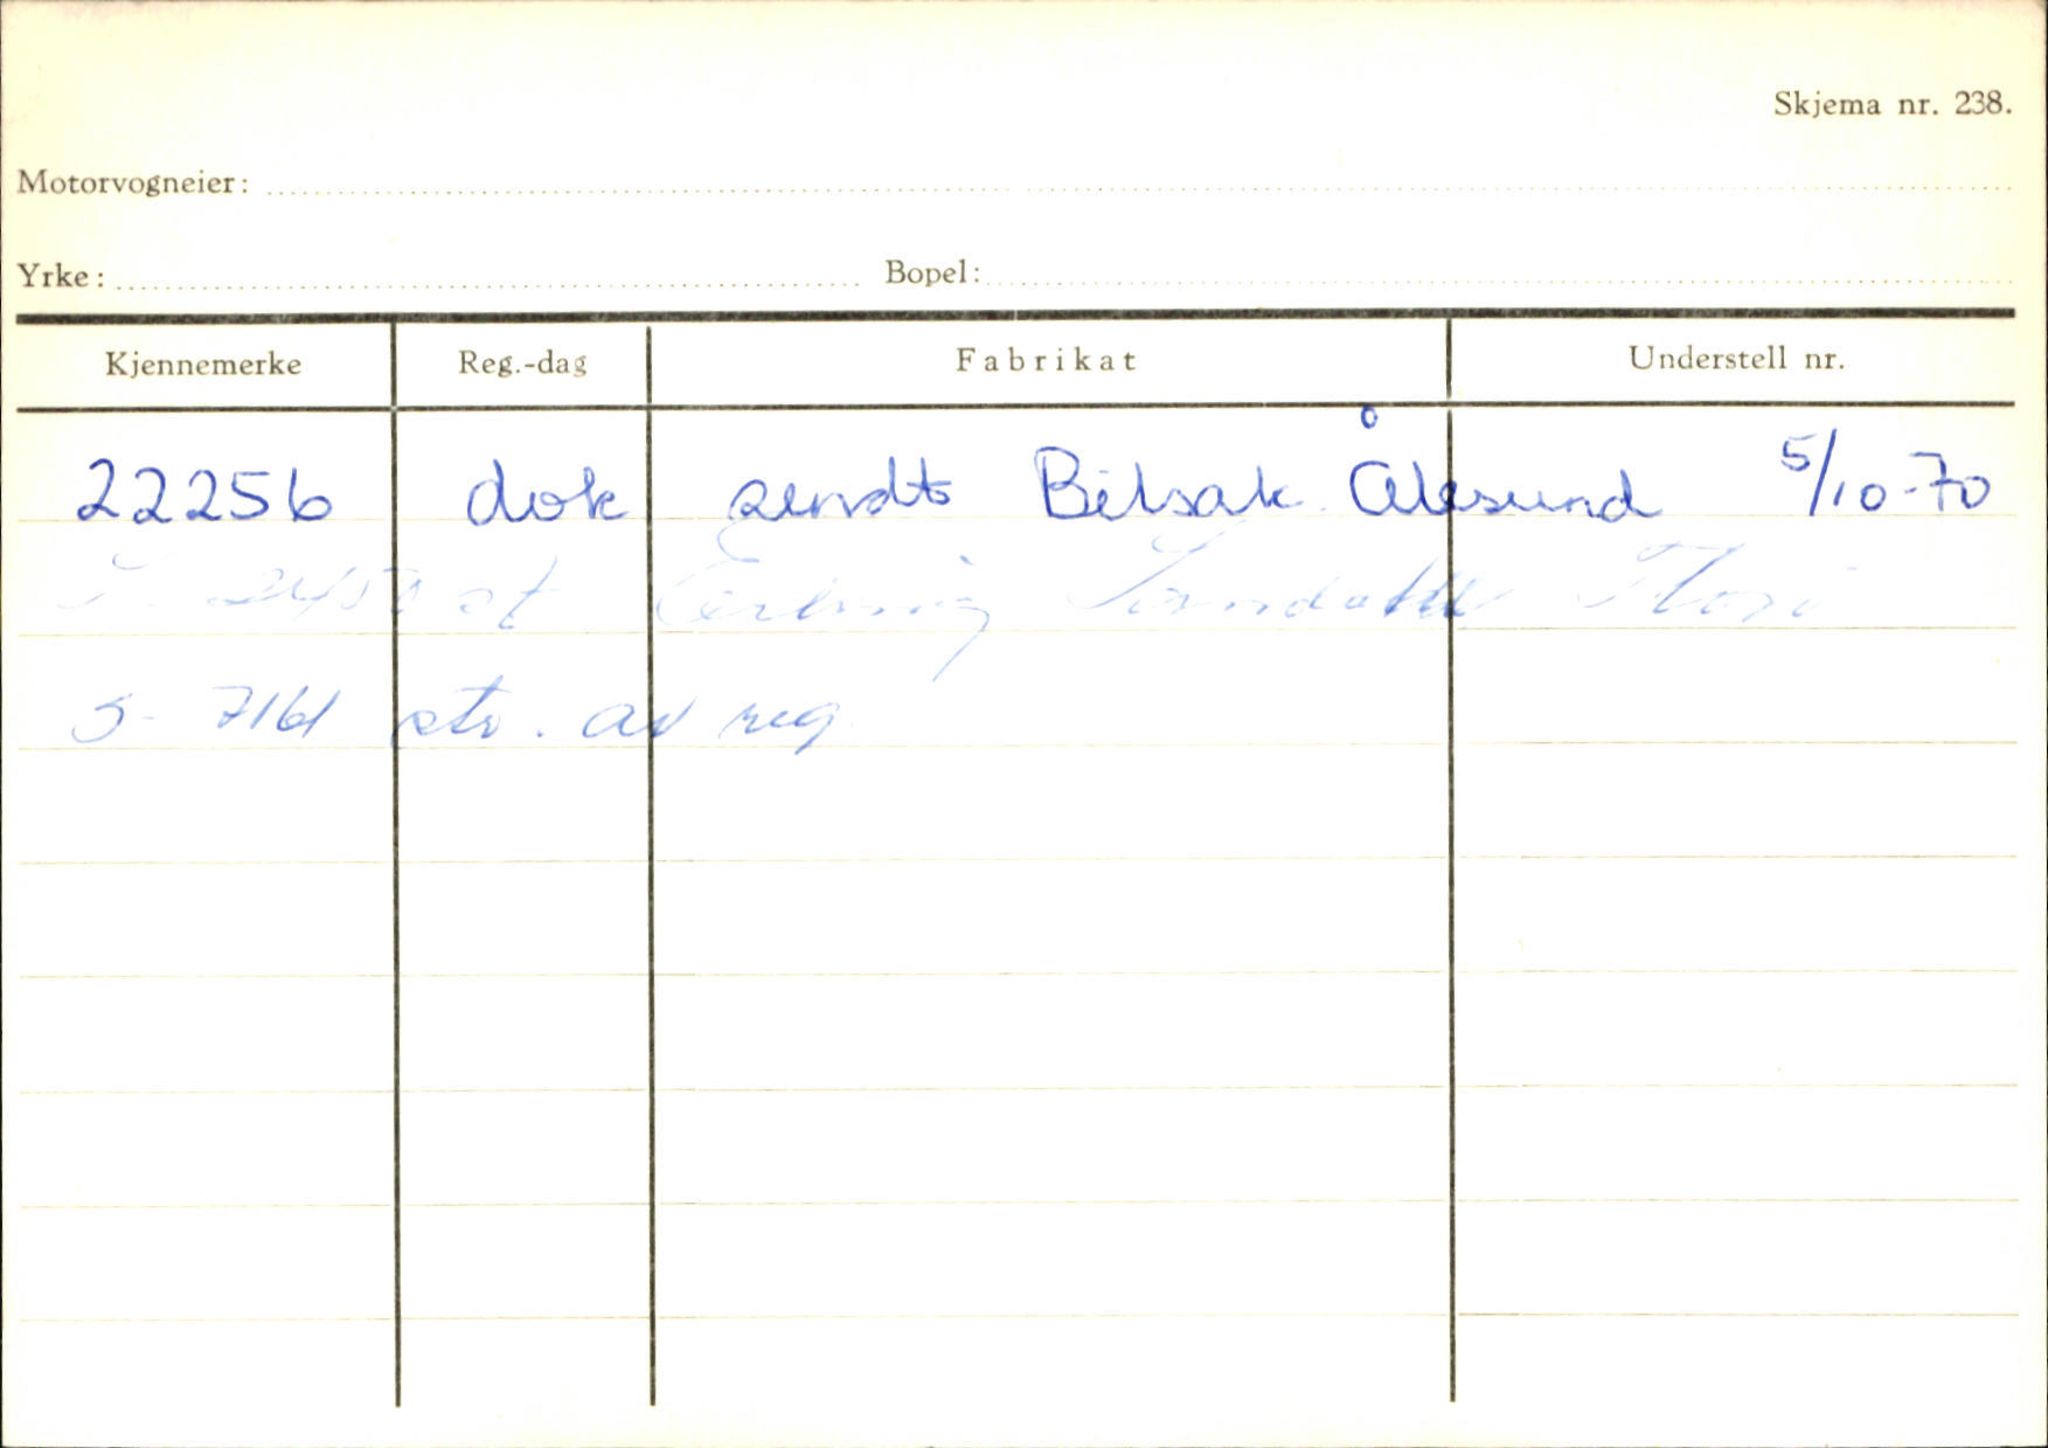 Skjema nr. 238.
Motorvogneier:
Yrke: Bopel:
Kjennemerke Reg.-dag Fabrikat Understell nr.
22256 dok sendt Bilsak. Ålesund 5/10-70
st Erling
S- 7161 str. av reg